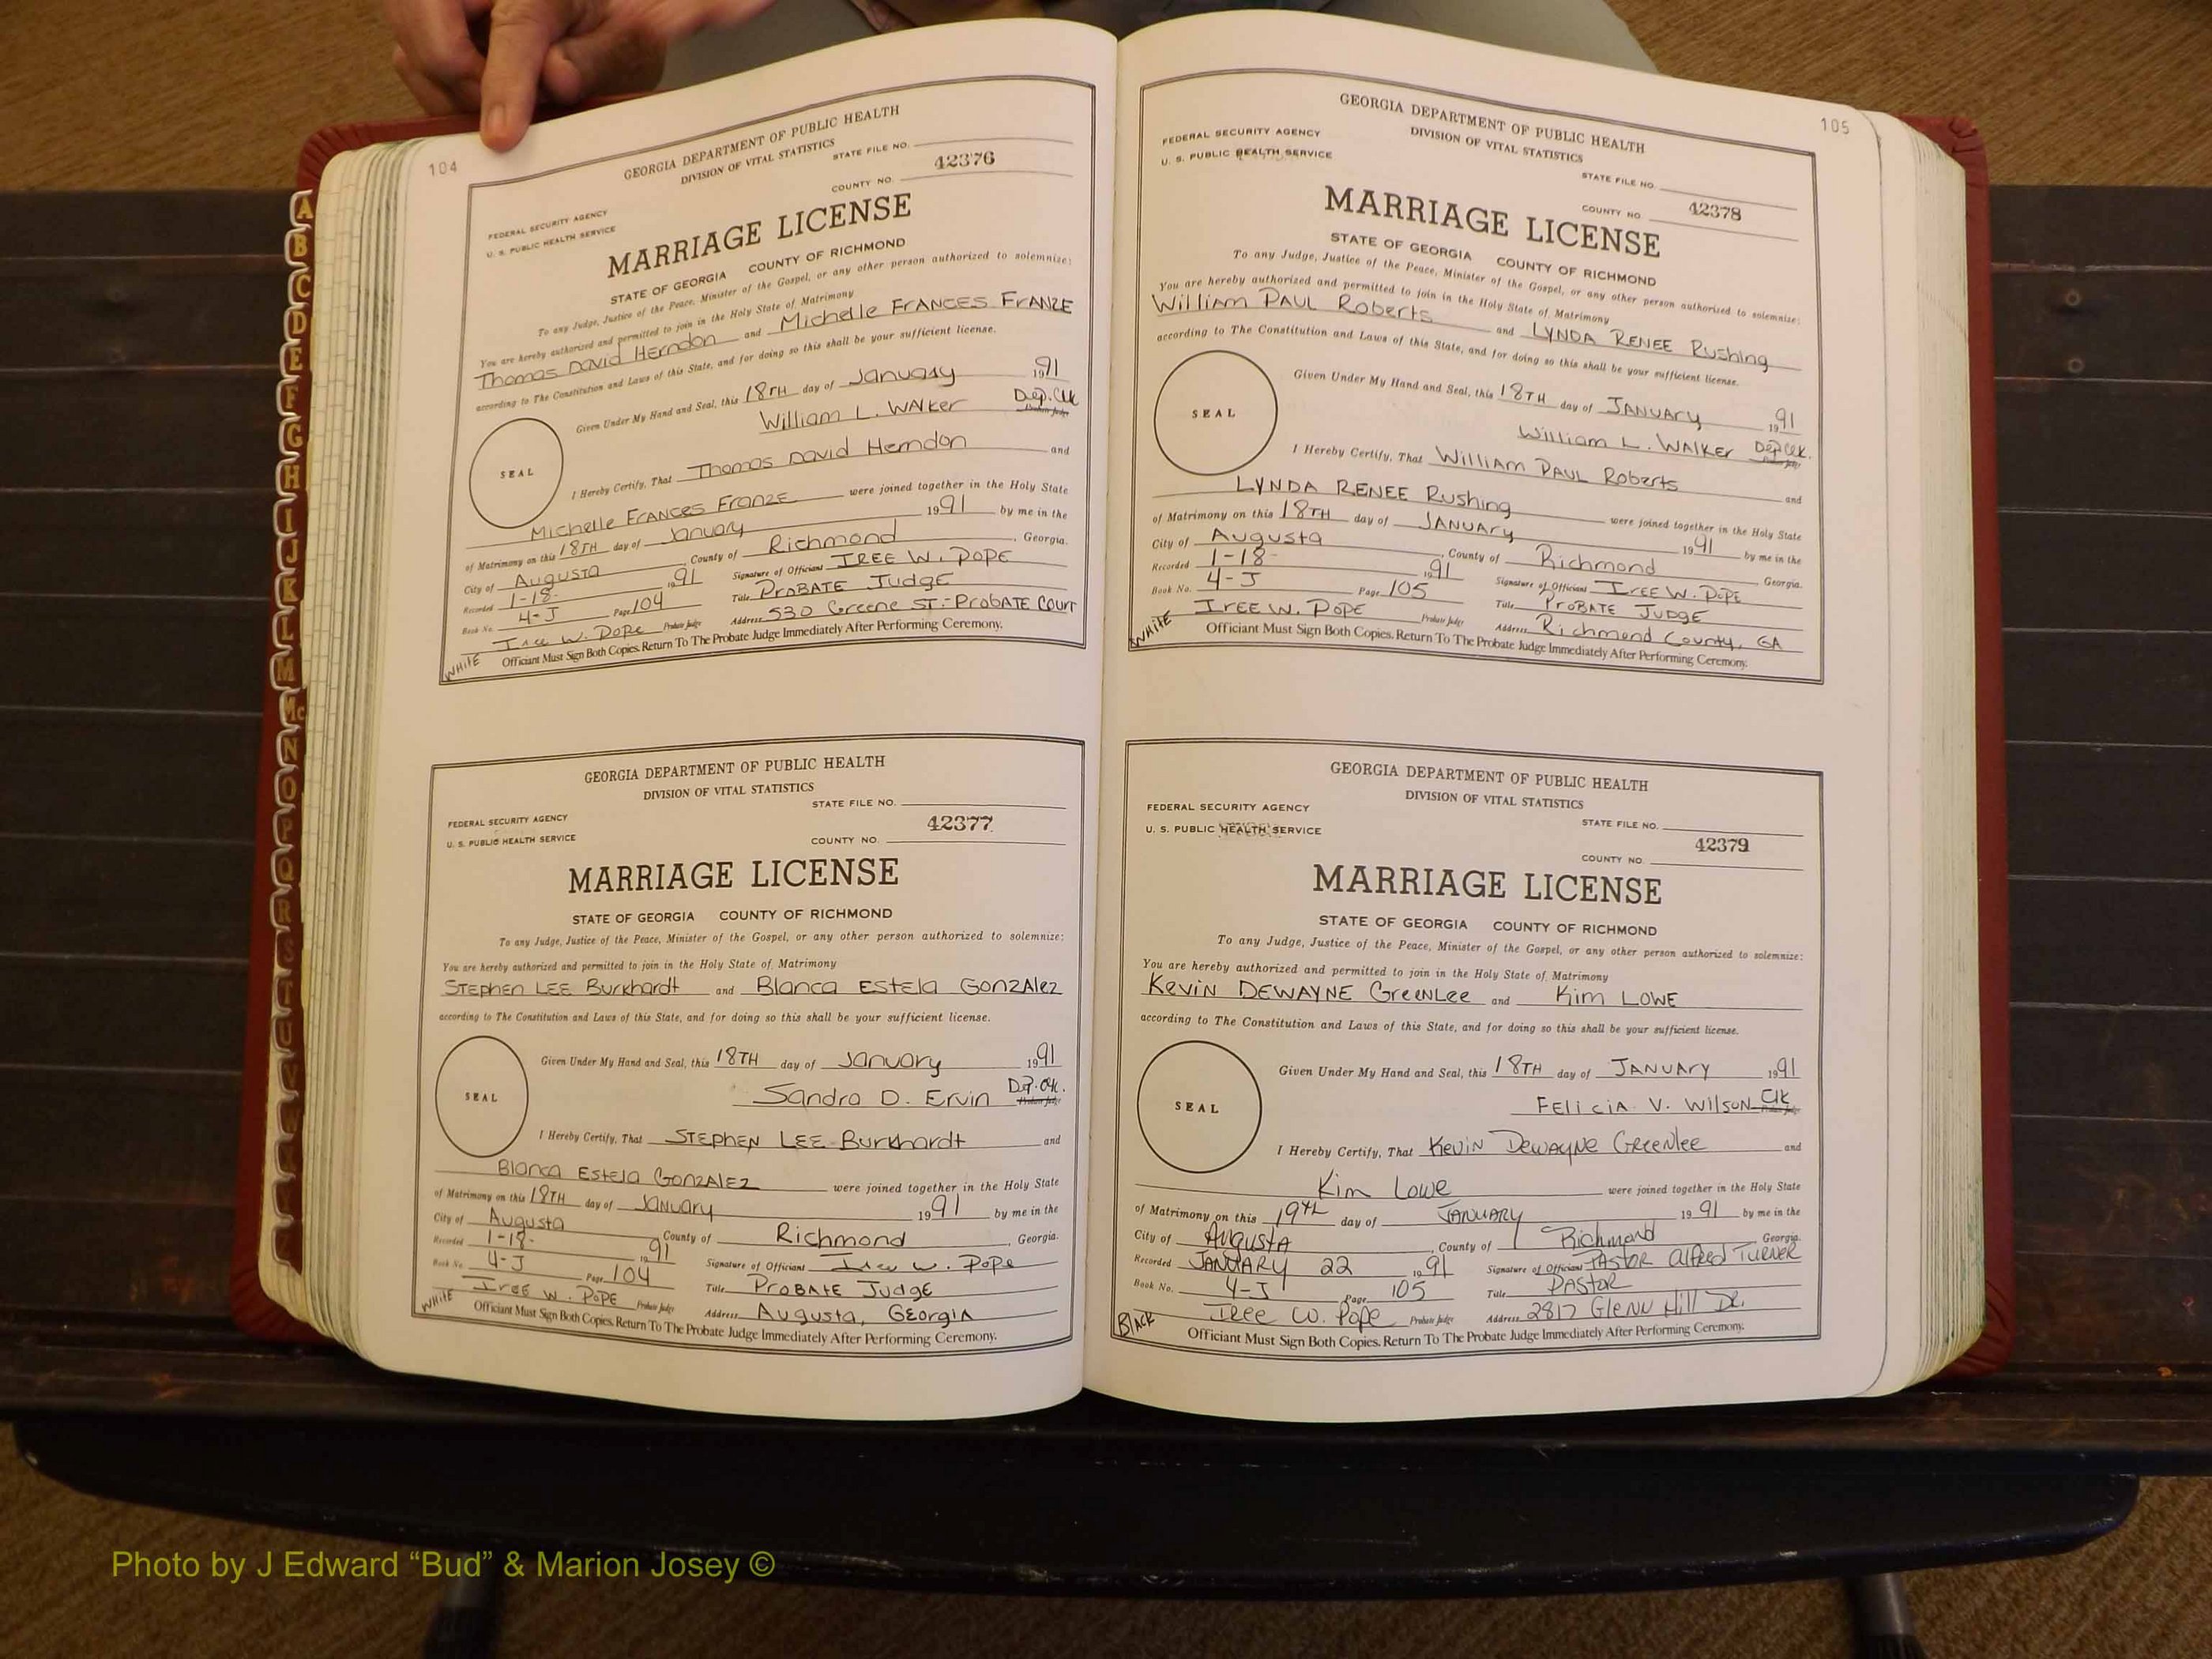 104
GEORGIA DEPARTMENT OF PUBLIC HEALTH
DIVISION OF VITAL STATISTICS
STATE FILE NO.
42376
COUNTY NO.
FEDERAL SECURITY AGENCY
U. S. PUBLIC HEALTH SERVICE
MARRIAGE LICENSE
STATE OF GEORGIA COUNTY OF RICHMOND
To any Judge, Justice of the Peace, Minister of the Gospel, or any other person authorized to solemnize:
You are hereby authorized and permitted to join in the Holy State of Matrimony
Thomas David Herndon and Michelle FRANCES FRANZE
according to The Constitution and Laws of this State, and for doing so this shall be your sufficient license.
Given Under My Hand and Seal, this 18TH day of January 1991
William L. WAlker Dep. Clk
Probate Judge
SEAL
I Hereby Certify, That Thomas David Herndon and
Michelle FRANCES FRANZE were joined together in the Holy State
of Matrimony on this 18TH day of January 1991 by me in the
City of Augusta County of Richmond, Georgia.
Recorded 1-18- 1991 Signature of Officiant IREE W. POPE
Book No. 4-J Page 104 Title ProBATE JudgE
Iree W. Pope Probate Judge Address 530 Greene ST.-ProbATE Court
WHITE Officiant Must Sign Both Copies. Return To The Probate Judge Immediately After Performing Ceremony.
GEORGIA DEPARTMENT OF PUBLIC HEALTH
DIVISION OF VITAL STATISTICS
STATE FILE NO.
FEDERAL SECURITY AGENCY
42377
U. S. PUBLIC HEALTH SERVICE
COUNTY NO.
MARRIAGE LICENSE
STATE OF GEORGIA COUNTY OF RICHMOND
To any Judge, Justice of the Peace, Minister of the Gospel, or any other person authorized to solemnize:
You are hereby authorized and permitted to join in the Holy State of Matrimony
STEPHEN LEE Burkhardt and Blanca EStela GonzAlez
according to The Constitution and Laws of this State, and for doing so this shall be your sufficient license.
Given Under My Hand and Seal, this 18TH day of January 1991
Sandra D. Ervin Dep. Clk.
Probate Judge
SEAL
I Hereby Certify, That STEPHEN LEE Burkhardt and
Blanca EStela GonzALEZ were joined together in the Holy State
of Matrimony on this 18TH day of January 1991 by me in the
City of Augusta County of Richmond, Georgia.
Recorded 1-18- 1991 Signature of Officiant Iree W. Pope
Book No. 4-J Page 104 Title ProBAtE Judge
IrEE W. POPE Probate Judge Address Augusta, GEorgiA
WHITE Officiant Must Sign Both Copies. Return To The Probate Judge Immediately After Performing Ceremony.
105
GEORGIA DEPARTMENT OF PUBLIC HEALTH
DIVISION OF VITAL STATISTICS
FEDERAL SECURITY AGENCY
U. S. PUBLIC HEALTH SERVICE
STATE FILE NO.
42378
COUNTY NO
MARRIAGE LICENSE
STATE OF GEORGIA COUNTY OF RICHMOND
To any Judge, Justice of the Peace, Minister of the Gospel, or any other person authorized to solemnize:
You are hereby authorized and permitted to join in the Holy State of Matrimony
William PAUL Roberts and LYNDA RENEE Rushing
according to The Constitution and Laws of this State, and for doing so this shall be your sufficient license.
Given Under My Hand and Seal, this 18TH day of JANUARY 1991
William L. WALKER Dep Clk.
Probate Judge
SEAL
I Hereby Certify, That William PAUL Roberts and
LYNDA RENEE Rushing were joined together in the Holy State
of Matrimony on this 18TH day of JANUARY 1991 by me in the
City of Augusta, County of Richmond Georgia.
Recorded 1-18- 1991 Signature of Officiant IrEE W. POPE
Book No. 4-J Page 105 Title ProBATE JudgE
IrEE W. POPE Probate Judge Address Richmond County, GA
WHITE Officiant Must Sign Both Copies. Return To The Probate Judge Immediately After Performing Ceremony.
GEORGIA DEPARTMENT OF PUBLIC HEALTH
DIVISION OF VITAL STATISTICS
FEDERAL SECURITY AGENCY
U. S. PUBLIC HEALTH SERVICE
STATE FILE NO.
42379
COUNTY NO.
MARRIAGE LICENSE
STATE OF GEORGIA COUNTY OF RICHMOND
To any Judge, Justice of the Peace, Minister of the Gospel, or any other person authorized to solemnize:
You are hereby authorized and permitted to join in the Holy State of Matrimony
Kevin DEWAYNE GreenLee and Kim LOWE
according to The Constitution and Laws of this State, and for doing so this shall be your sufficient license.
Given Under My Hand and Seal, this 18TH day of JANUARY 1991
FELiciA V. WilsoN Clk
Probate Judge
SEAL
I Hereby Certify, That Kevin Dewayne Greenlee and
Kim Lowe were joined together in the Holy State
of Matrimony on this 19th day of JANUARY 1991 by me in the
City of Augusta, County of Richmond Georgia.
Recorded JANUARY 22 1991 Signature of Officiant PASTOR Alfred TURNER
Book No. 4-J Page 105 Title PAStor
Iree W. Pope Probate Judge Address 2817 Glenn Hill Dr.
BlACK Officiant Must Sign Both Copies. Return To The Probate Judge Immediately After Performing Ceremony.
A
B
C
D
E
F
G
H
I
J
K
L
M
Mc
N
O
P
Q
R
S
T
U
Photo by J Edward “Bud” & Marion Josey ©